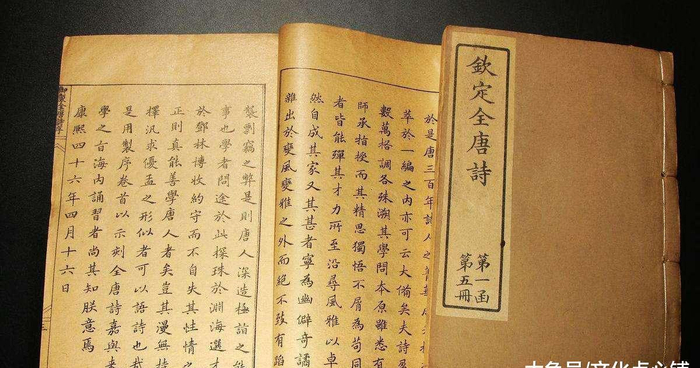 欽定全唐詩
第一函
第五冊
於是唐三百年詩人之菁華
萃於一編之內亦可云大備矣夫詩
數萬格調各殊溯其學問本原雖悉有
師承指授而其精思獨悟不屑為苟同
者皆能殫其才力所至沿尋風雅以卓
然自成其家又其甚者寧為幽僻奇譎
雜出於變風變雅之外而絕不致有蹈
製剽竊之弊是則唐人深造極詣之能
事也學者問途於此探珠於淵海選才
於鄧林博收約守而不自失其性情之
正則真能善學唐人者矣豈其漫無持
擇汎求優孟之形似者可以語詩也哉
是用製序卷首以示刻全唐詩嘉與來
學之古海內誦習者尚其知朕意焉
康熙四十六年四月十六日
大鱼号/文化点心铺